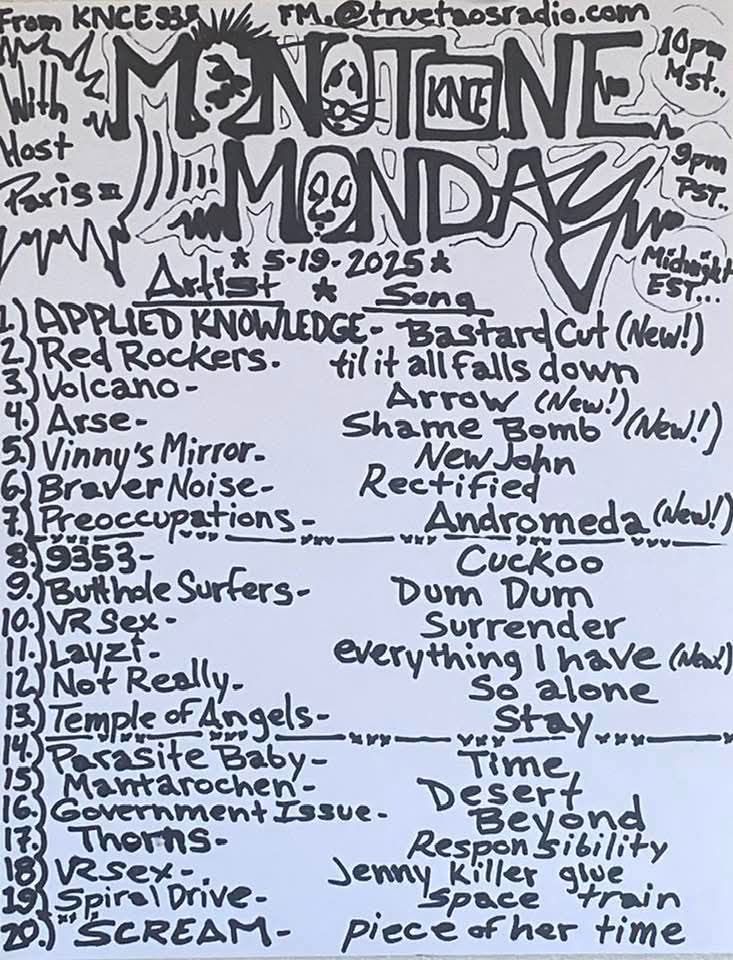 From KNCE 93.5 FM.@truetaosradio.com
With Host Paris III
MONOTONE
KNCE
MONDAY
10pm Mst..
9pm PST..
Midnight EST...
* 5-19-2025 *
Artist * Song
1.) APPLIED KNOWLEDGE- Bastard Cut (New!)
2.) Red Rockers. til it all falls down
3.) Volcano- Arrow (New!)
4.) Arse- Shame Bomb (New!)
5.) Vinny's Mirror- New John
6.) Braver Noise- Rectified
7.) Preoccupations- Andromeda (New!)
8.) 9353- Cuckoo
9.) Butthole Surfers- Dum Dum
10.) VR Sex- Surrender
11.) Layzi- everything I have (New!)
12.) Not Really- So alone
13.) Temple of Angels- Stay
14.) Parasite Baby- Time
15.) Mantarochen- Desert
16.) Government Issue- Beyond
17.) Thorns- Responsibility
18.) VRsex- Jenny Killer glue
19.) Spiral Drive- space train
20.) "SCREAM- piece of her time